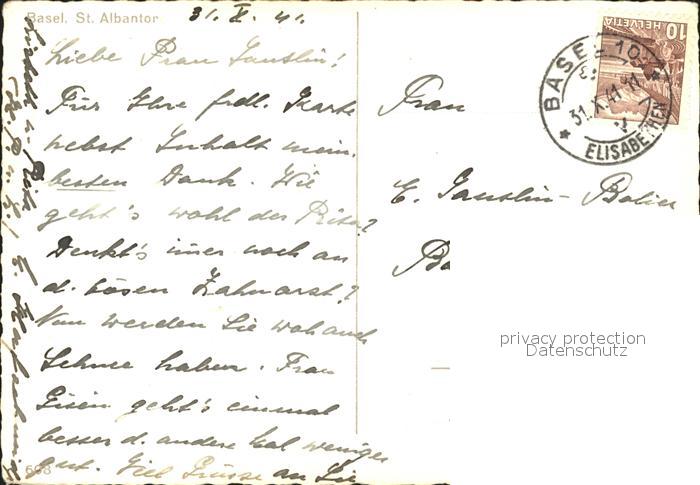 Basel, St. Albantor
31. X. 41.
Liebe Frau
Für Ihre frdl. Karte
nebst Inhalt mein.
besten Dank. Wie
geht's wohl der Rita?
Denkt's imer noch an
d. bösen Zahnarzt?
Nun werden Sie woh auch
Schnee haben. Frau
geht's einmal
besser d. andere Mal weniger
gut. Viel Grüsse an Sie
608
Frau
E.
Ba
HELVETIA
10
BASEL 10
31.X.41
ELISABETHEN
privacy protection
Datenschutz